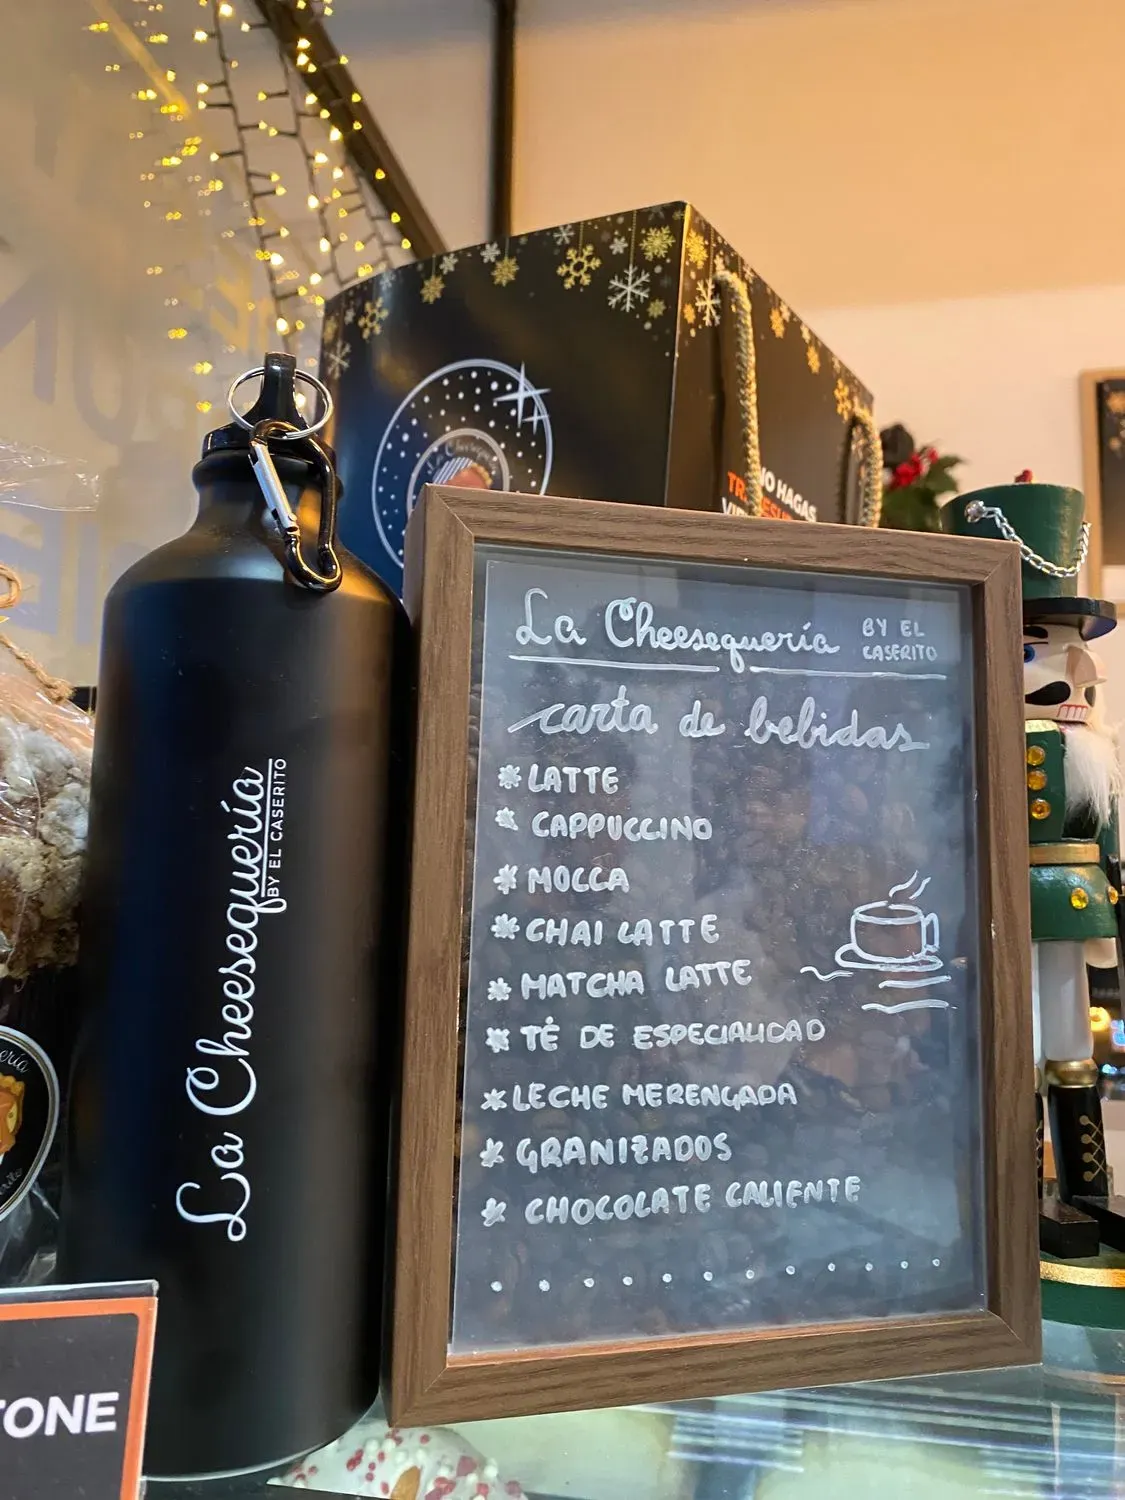 La Cheesequería BY EL
CASERITO
carta de bebidas
* LATTE
* CAPPUCCINO
* MOCCA
* CHAI LATTE
* MATCHA LATTE
* TÉ DE ESPECIALIDAD
* LECHE MERENGADA
* GRANIZADOS
* CHOCOLATE CALIENTE
La Cheesequería
BY EL CASERITO
NO HAGAS
TONE